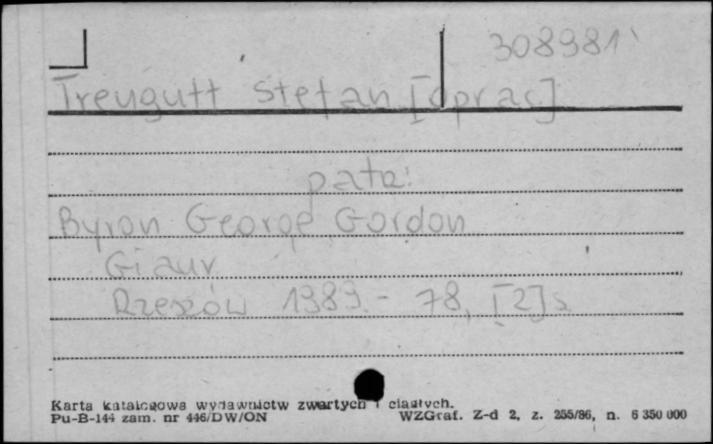 308981
Treugutt Stefan [oprac]
patrz:
Byron George Gordon
Giaur
Rzeszów 1989.- 78, [2] s
Karta katalogowa wydawnictw zwartych i ciągłych.
Pu-B-144 zam. nr 446/DW/ON WZGraf. Z-d 2, z. 255/86, n. 6 350 000